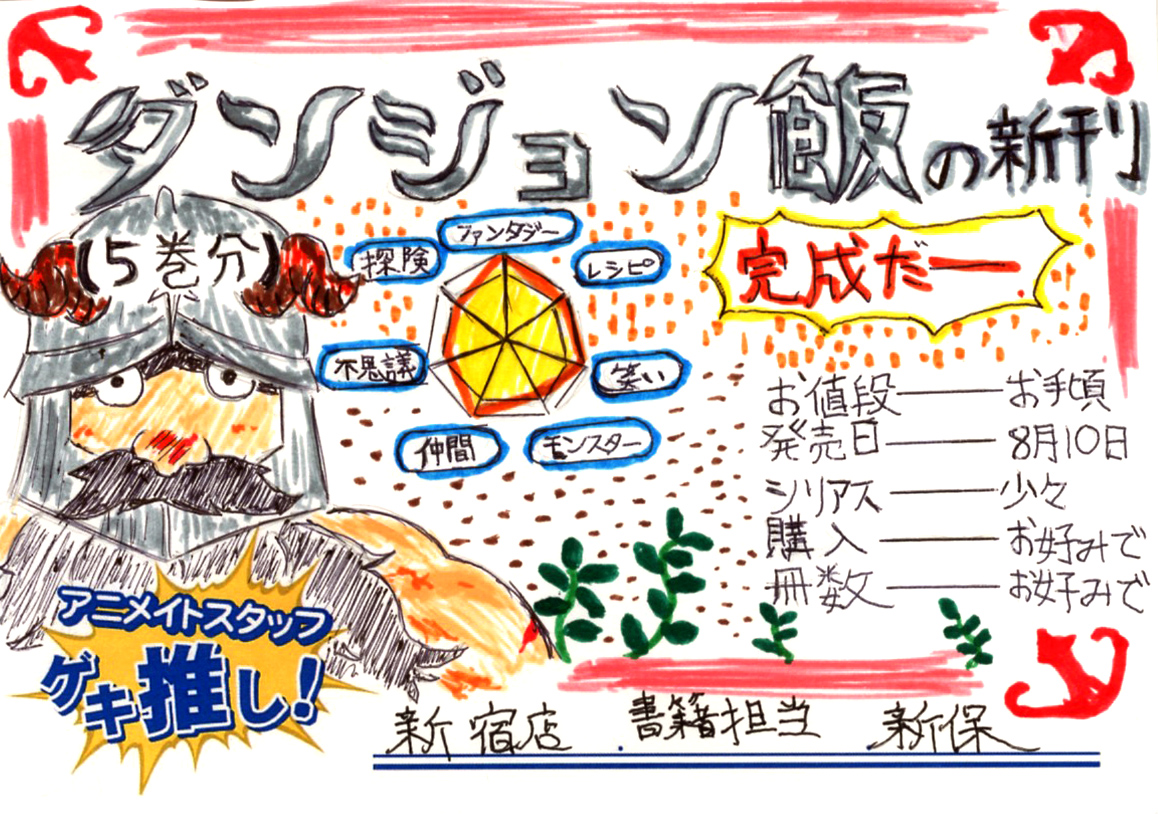 ダンジョン飯の新刊
(5巻分)
完成だー
ファンタジー
探険
レシピ
不思議
笑い
仲間
モンスター
お値段――お手頃
発売日――8月10日
シリアス――少々
購入――お好みで
冊数――お好みで
アニメイトスタッフ
ゲキ推し!
新宿店 書籍担当 新保